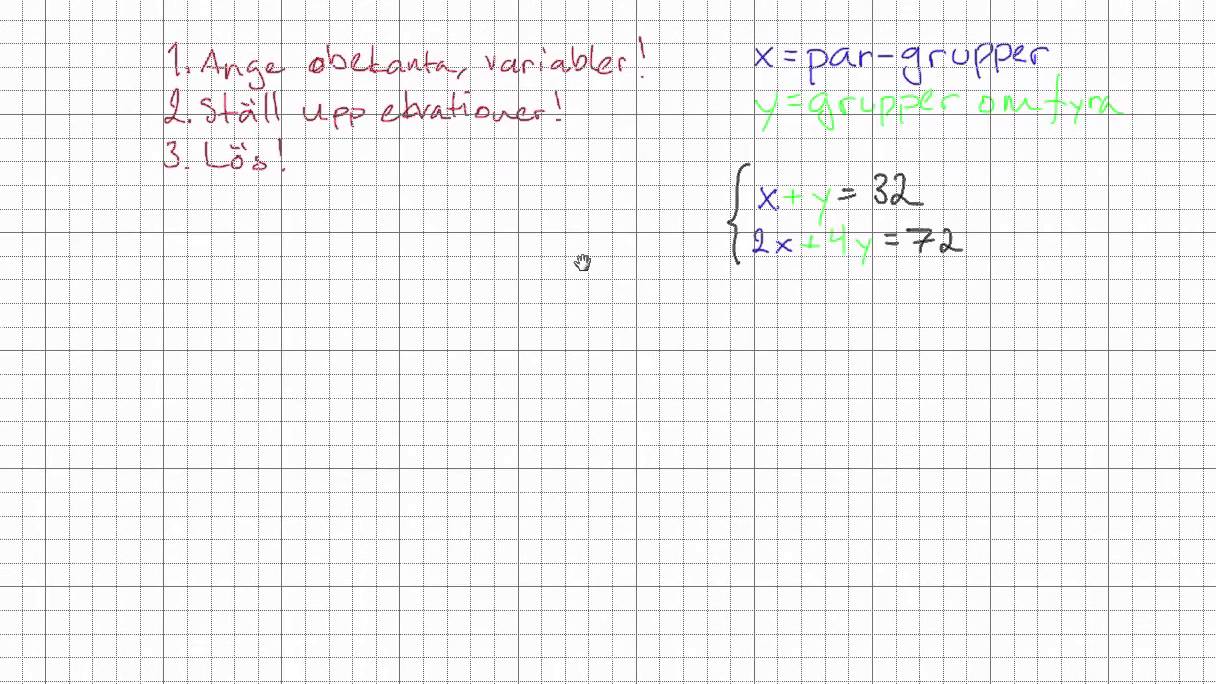 1. Ange obekanta, variabler!
2. Ställ upp ekvationer!
3. Lös!
x = par-grupper
y = grupper om fyra
x + y = 32
2x + 4y = 72